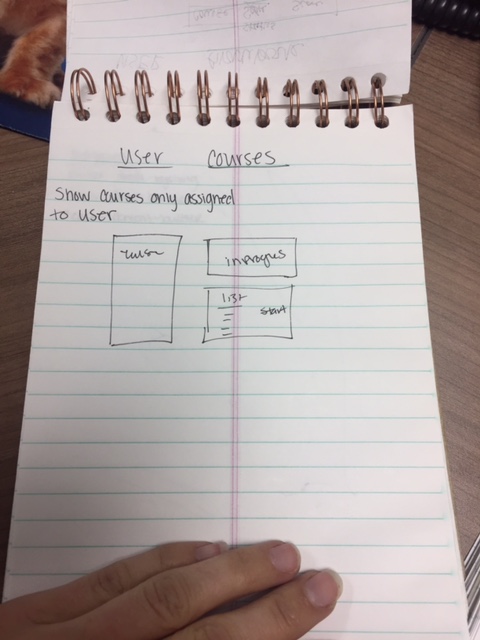 User Courses
Show courses only assigned
to user
inprogres
list
start